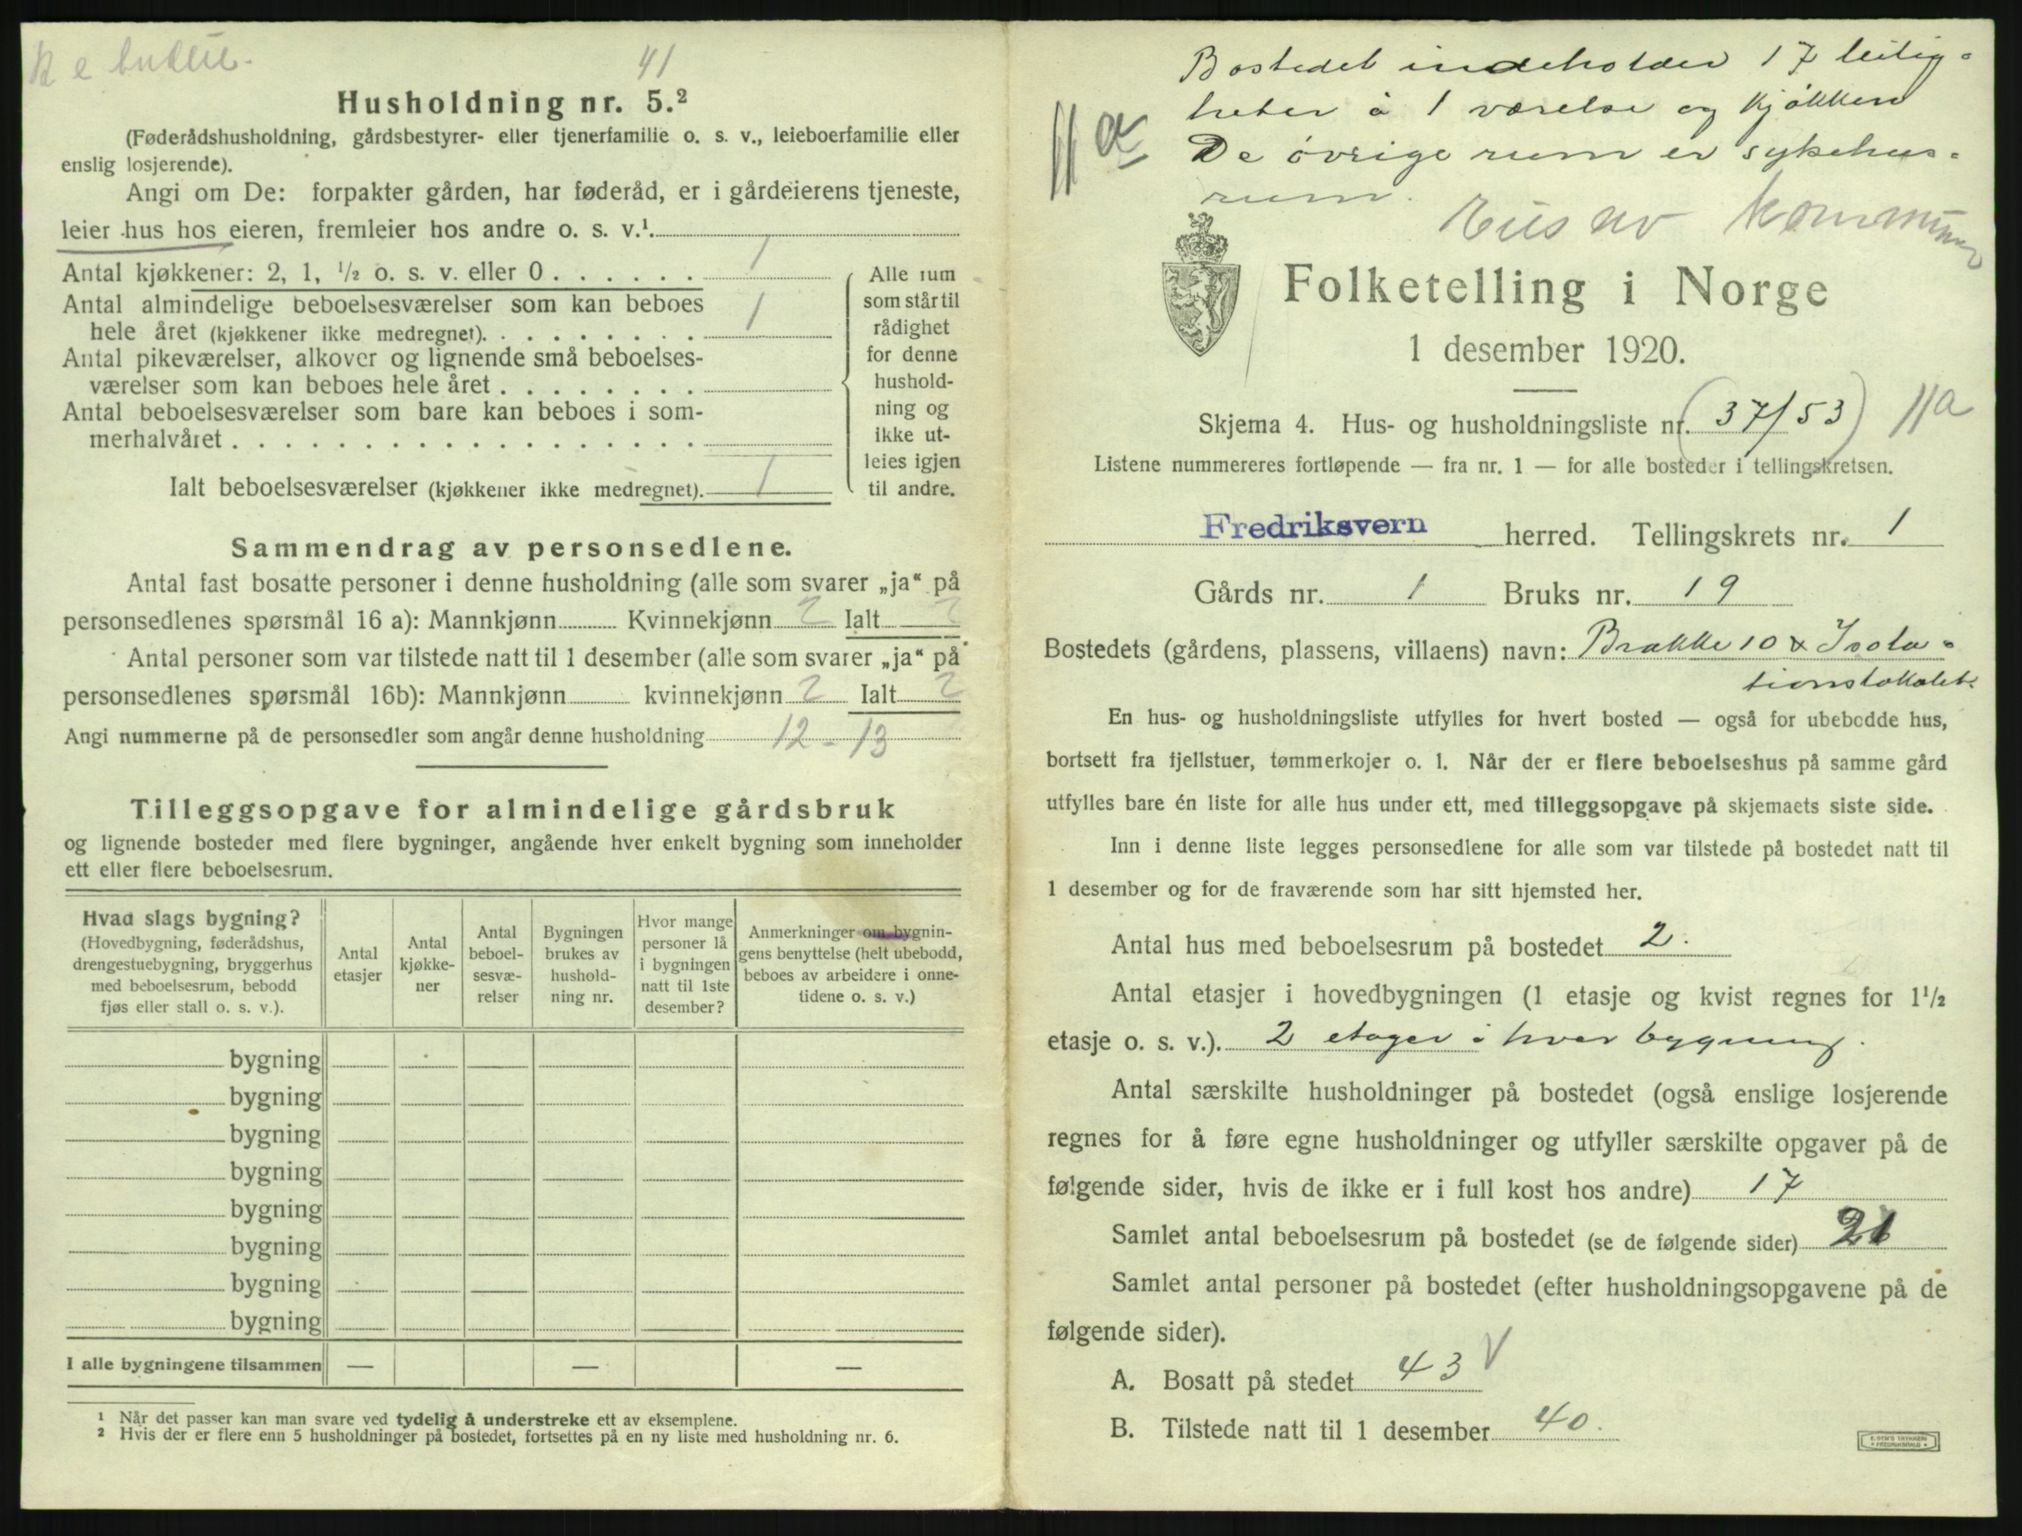 41
Husholdning nr. 5.²
(Føderådshusholdning, gårdsbestyrer- eller tjenerfamilie o. s. v., leieboerfamilie eller
enslig losjerende).
Angi om De: forpakter gården, har føderåd, er i gårdeierens tjeneste,
leier hus hos eieren, fremleier hos andre o. s. v.¹
Antal kjøkkener: 2, 1, ½ o. s. v. eller 0 . . . . . . 1
Antal almindelige beboelsesværelser som kan beboes
hele året (kjøkkener ikke medregnet). . . . . . . . . 1
Antal pikeværelser, alkover og lignende små beboelses-
værelser som kan beboes hele året . . . . . . . .
Antal beboelsesværelser som bare kan beboes i som-
merhalvåret . . . . . . . . . . . . . . . . .
Ialt beboelsesværelser (kjøkkener ikke medregnet). 1
Alle rum
som står til
rådighet
for denne
hushold-
ning og
ikke ut-
leies igjen
til andre.
Sammendrag av personsedlene.
Antal fast bosatte personer i denne husholdning (alle som svarer „ja“ på
personsedlenes spørsmål 16 a): Mannkjønn Kvinnekjønn 2 Ialt 2
Antal personer som var tilstede natt til 1 desember (alle som svarer „ja“ på
personsedlenes spørsmål 16b): Mannkjønn kvinnekjønn 2 Ialt 2
Angi nummerne på de personsedler som angår denne husholdning 12 - 13
Tilleggsopgave for almindelige gårdsbruk
og lignende bosteder med flere bygninger, angående hver enkelt bygning som inneholder
ett eller flere beboelsesrum.
Hvad slags bygning?
(Hovedbygning, føderådshus,
drengestuebygning, bryggerhus
med beboelsesrum, bebodd
fjøs eller stall o. s. v.).
Antal
etasjer
Antal
kjøkke-
ner
Antal
beboel-
sesvæ-
relser
Bygningen
brukes av
hushold-
ning nr.
Hvor mange
personer lå
i bygningen
natt til 1ste
desember?
Anmerkninger om bygnin-
gens benyttelse (helt ubebodd,
beboes av arbeidere i onne-
tidene o. s. v.)
bygning
bygning
bygning
bygning
bygning
bygning
bygning
bygning
I alle bygningene tilsammen — — —
¹ Når det passer kan man svare ved tydelig å understreke ett av eksemplene.
² Hvis der er flere enn 5 husholdninger på bostedet, fortsettes på en ny liste med husholdning nr. 6.
Bostedet indeholder 17 leilig-
heter á 1 værelse og kjøkken
De øvrige rum er sykehus-
rum.
11 a
Hus av kommunen
Folketelling i Norge
1 desember 1920.
Skjema 4. Hus- og husholdningsliste nr. (37/53) 11a
Listene nummereres fortløpende — fra nr. 1 — for alle bosteder i tellingskretsen.
Fredriksvern herred. Tellingskrets nr. 1
Gårds nr. 1 Bruks nr. 19
Bostedets (gårdens, plassens, villaens) navn: Brakke 10 & Isola-
tionslokalet.
En hus- og husholdningsliste utfylles for hvert bosted — også for ubebodde hus,
bortsett fra fjellstuer, tømmerkojer o. l. Når der er flere beboelseshus på samme gård
utfylles bare én liste for alle hus under ett, med tilleggsopgave på skjemaets siste side.
Inn i denne liste legges personsedlene for alle som var tilstede på bostedet natt til
1 desember og for de fraværende som har sitt hjemsted her.
Antal hus med beboelsesrum på bostedet 2.
Antal etasjer i hovedbygningen (1 etasje og kvist regnes for 1½
etasje o. s. v.). 2 etager i hver bygning.
Antal særskilte husholdninger på bostedet (også enslige losjerende
regnes for å føre egne husholdninger og utfyller særskilte opgaver på de
følgende sider, hvis de ikke er i full kost hos andre) 17
Samlet antal beboelsesrum på bostedet (se de følgende sider) 21
Samlet antal personer på bostedet (efter husholdningsopgavene på de
følgende sider).
A. Bosatt på stedet 43 V
B. Tilstede natt til 1 desember 40.